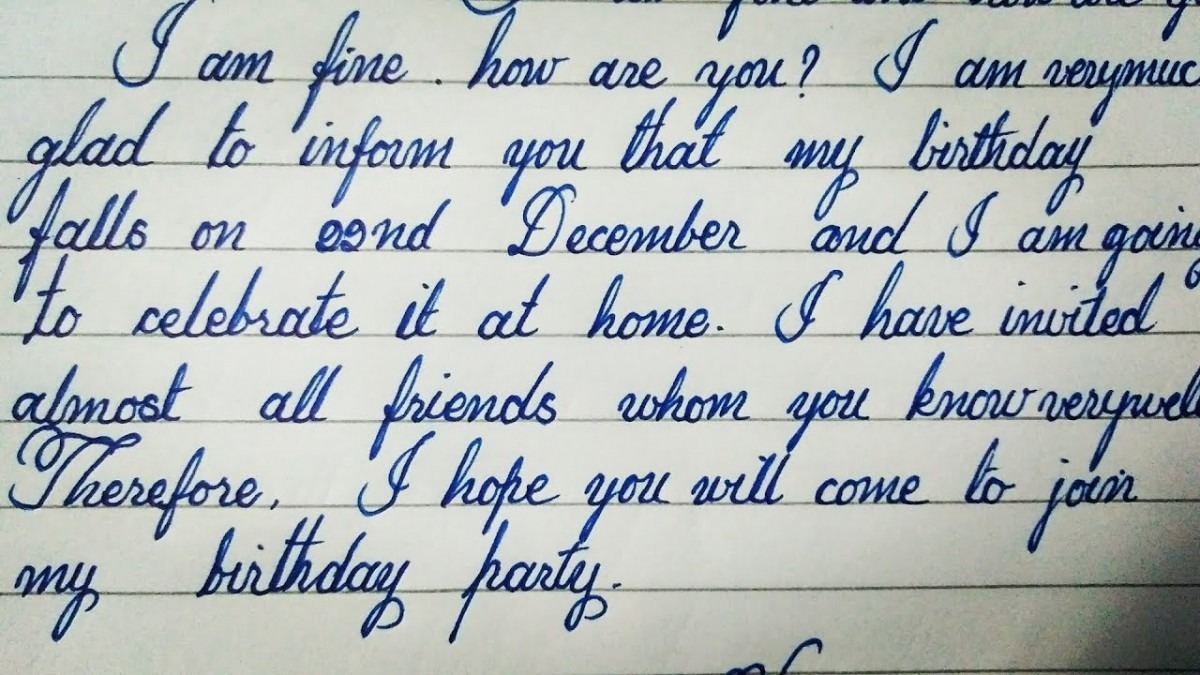 I am fine. how are you? I am verymuc
glad to inform you that my birthday
falls on 22nd December and I am going
to celebrate it at home. I have invited
almost all friends whom you know verywel
Therefore, I hope you will come to join
my birthday party.